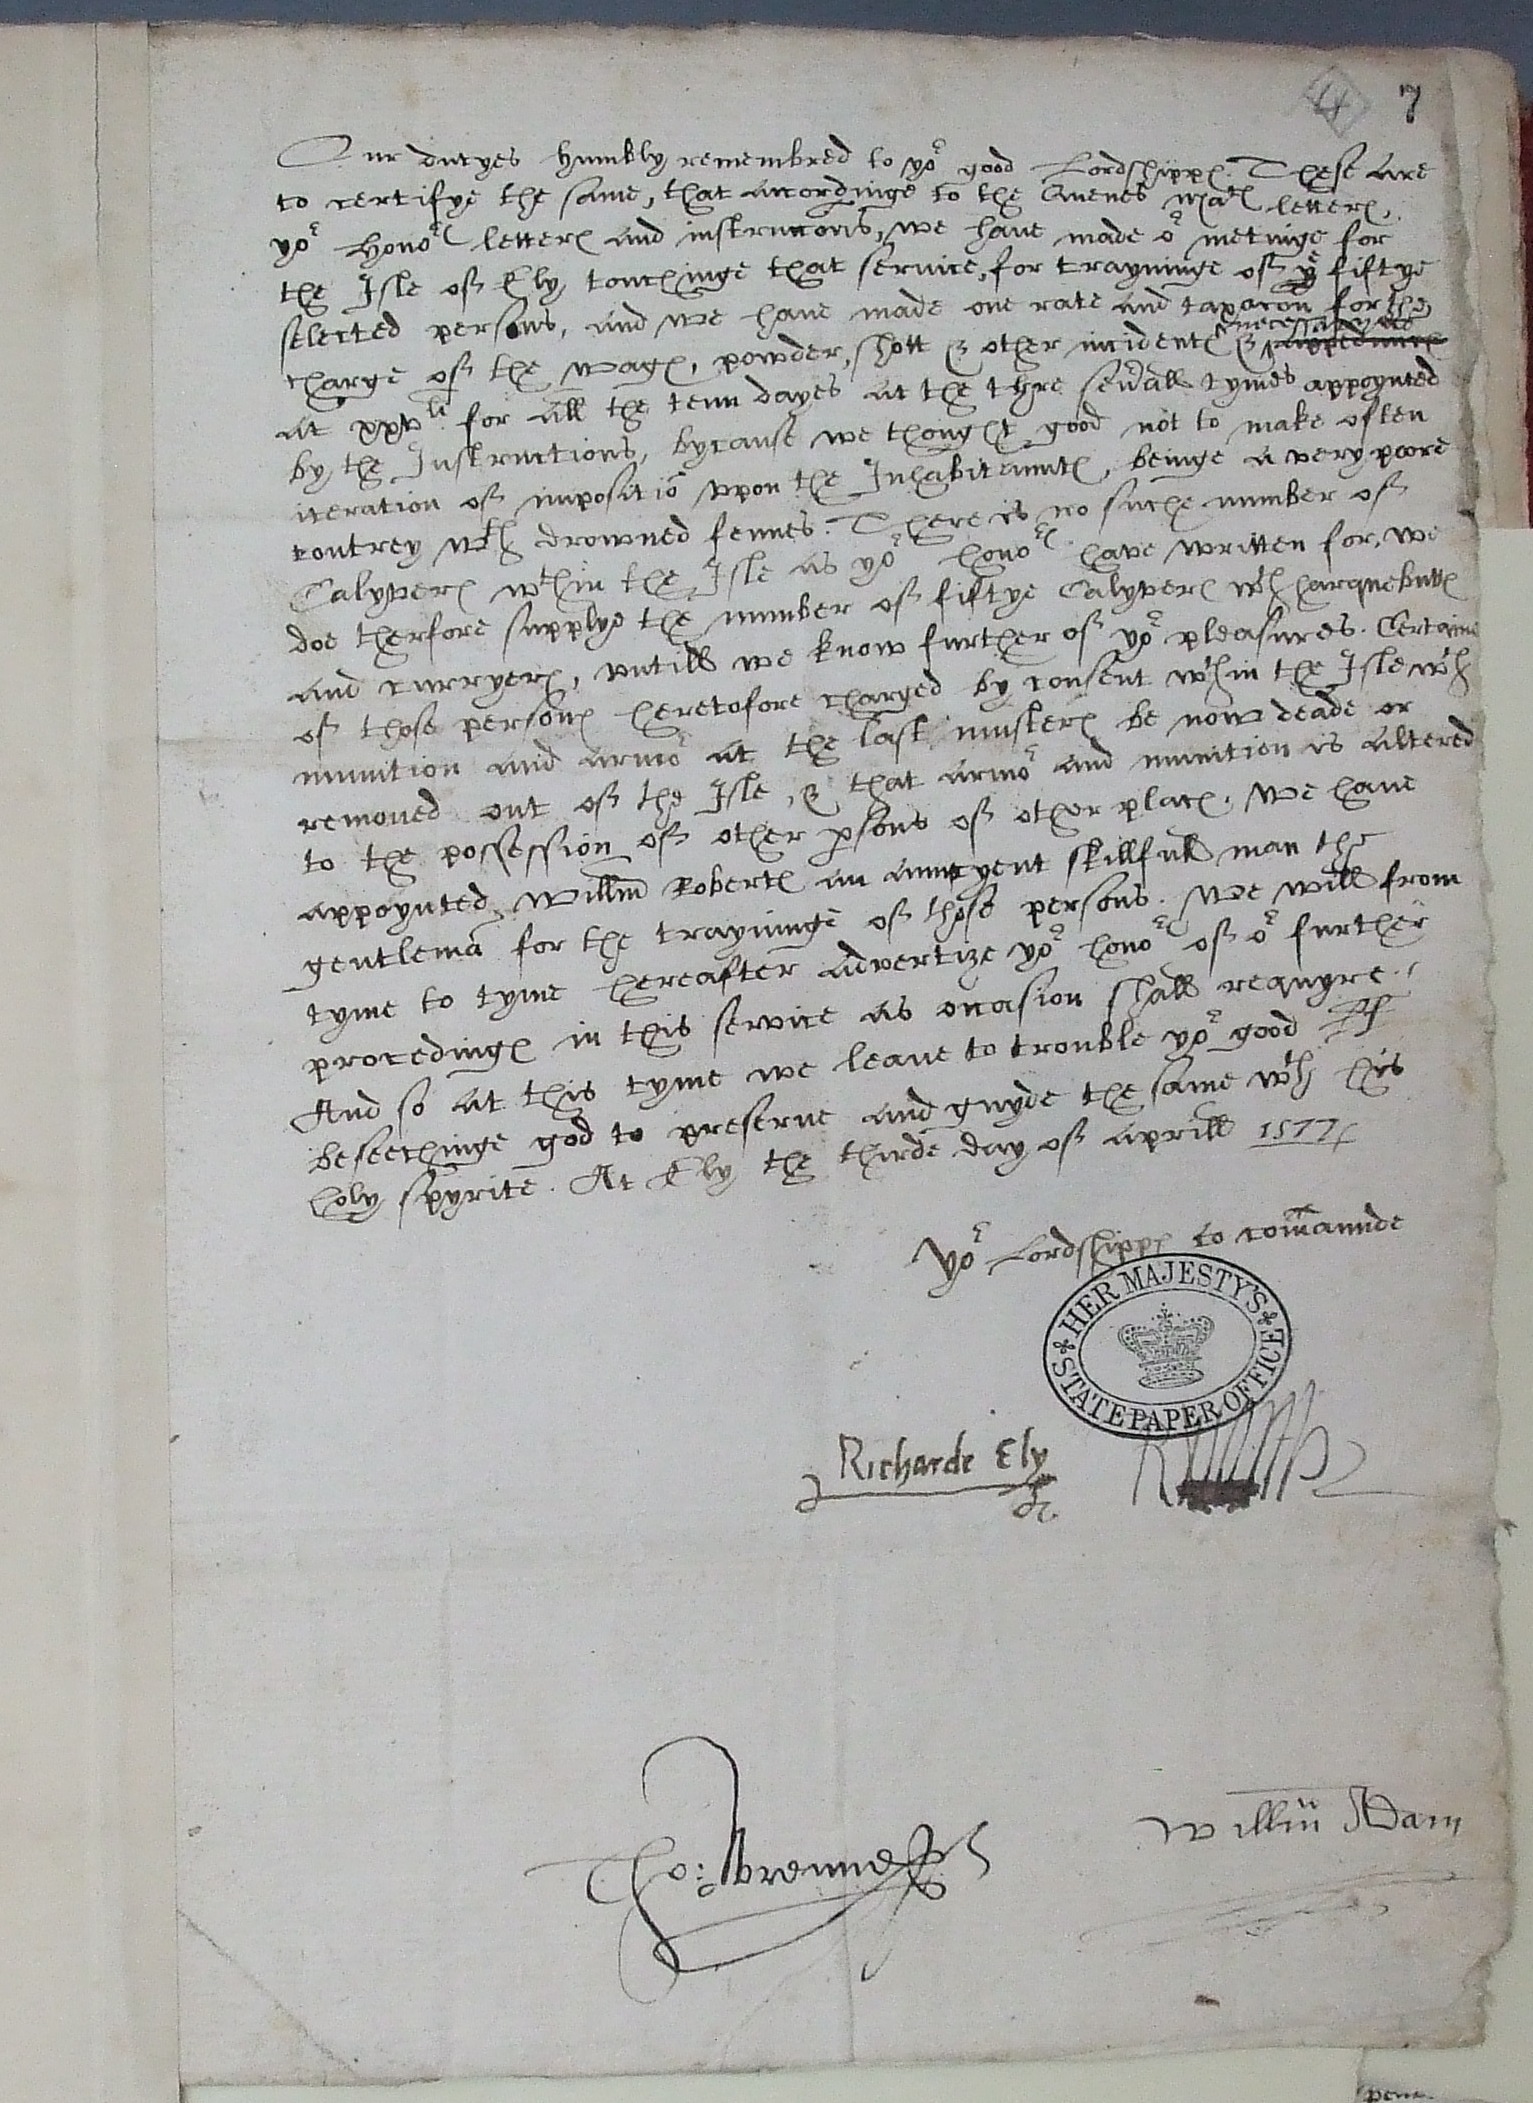 14 7
Our dutyes humbly remembred to yor good Lordshipps. These are
to certifye the same, that accordinge to the Quenes Mats letters,
yor honors letters and instruccons, we have made or metinge for
the Isle of Ely touchinge that service, for trayninge of ye fiftye
selected persons, and we have made one rate and taxacon for the
necessaryes
charge of the wages, powder, shott & other incidents &
at xxvli for all the tenn dayes at the thre severall tymes appoynted
by the Instructions, bycause we thought good not to make often
iteration of impositio upon the Inhabitaunts, beinge a very poore
contrey wth drowned fennes. There is no suche number of
Calyvers wthin the Isle as yor honors have written for, we
doe therfore supplye the number of fiftye Calyvers wth harquebutts
and curryers, untill we know further of yor pleasures. Certaine
of those persons heretofore charged by consent wthin the Isle wth
munition and armor at the last musters be now deade or
removed out of the Isle, & that armor and munition is altered
to the possession of other psons of other places. We have
appoynted Willm Roberts an auncyent skillfull man the
gentlema for the trayninge of those persons. We will from
tyme to tyme hereafter advertize yor honors of or further
procedings in this service as occasion shall requyre.
And so at this tyme we leave to trouble yor good LL
beseechinge god to preserve and guyde the same wth his
holy spyrite. At Ely the thirde day of Aprill 1577
Yor Lordshipps to comaunde
HER MAJESTY'S STATE PAPER OFFICE
Richarde Ely
Willm Adam
Tho: